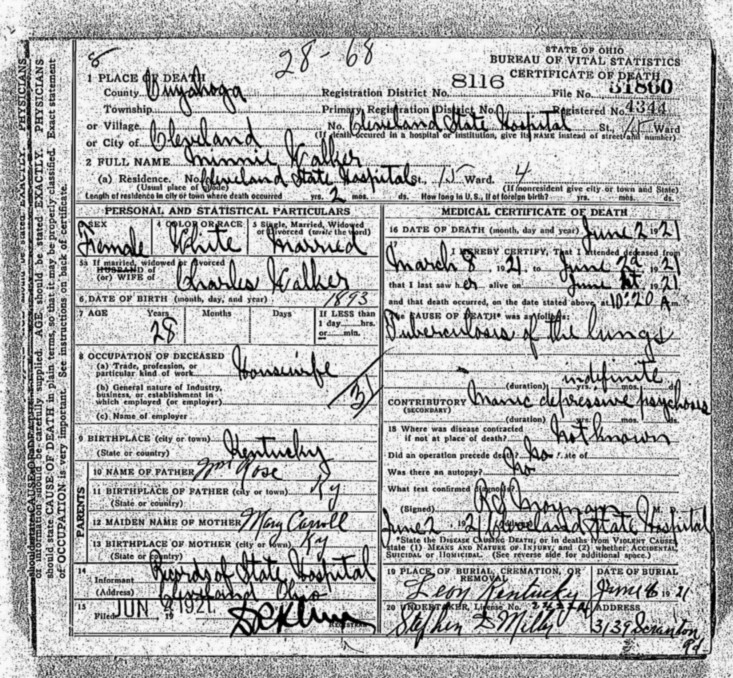 8
28-68
STATE OF OHIO
BUREAU OF VITAL STATISTICS
CERTIFICATE OF DEATH
1 PLACE OF DEATH
County Cuyahoga Registration District No. 8116 File No. 31860
Township Primary Registration District No. Registered No. 4344
or Village No. Cleveland State Hospital St., 15 Ward
or City of Cleveland (If death occured in a hospital or institution, give its NAME instead of street and number)
2 FULL NAME Minnie Walker
(a) Residence. No. Cleveland State Hospital St., 15 Ward. 4
(Usual place of abode) (If nonresident give city or town and State)
Length of residence in city or town where death occurred yrs. 2 mos. ds. How long in U.S., if of foreign birth? yrs. mos. ds.
PERSONAL AND STATISTICAL PARTICULARS
3 SEX 4 COLOR OR RACE 5 Single, Married, Widowed
or Divorced (write the word)
Female White Married
5a If married, widowed or divorced
HUSBAND of
(or) WIFE of Charles Walker
6 DATE OF BIRTH (month, day, and year) 1893
7 AGE Years Months Days If LESS than
1 day....hrs.
or....min.
28
8 OCCUPATION OF DECEASED
(a) Trade, profession, or
particular kind of work Housewife
(b) General nature of Industry,
business, or establishment in
which employed (or employer)
(c) Name of employer
31
9 BIRTHPLACE (city or town)
(State or country) Kentucky
PARENTS
10 NAME OF FATHER Wm Rose
11 BIRTHPLACE OF FATHER (city or town) Ky
(State or country)
12 MAIDEN NAME OF MOTHER Mary Carroll
13 BIRTHPLACE OF MOTHER (city or town) Ky
(State or country)
14
Informant Records of State Hospital
(Address) Cleveland Ohio
15
Filed JUN 4 1921, 19
Registrar
MEDICAL CERTIFICATE OF DEATH
16 DATE OF DEATH (month, day and year) June 2 1921
I HEREBY CERTIFY, That I attended deceased from
March 8, 1921, to June 2d, 1921
that I last saw her alive on June 1st, 1921
and that death occurred, on the date stated above, at 10:20 A m.
The CAUSE OF DEATH* was as follows:
Tuberculosis of the lungs
indefinite
(duration) yrs. mos. ds.
CONTRIBUTORY Manic depressive psychosis
(SECONDARY)
(duration) yrs. mos. ds.
18 Where was disease contracted
if not at place of death? Not known
Did an operation precede death? No Date of
Was there an autopsy? No
What test confirmed diagnosis?
(Signed) M.
June 2, 1921 Cleveland State Hospital
*State the DISEASE CAUSING DEATH, or in deaths from VIOLENT CAUSES,
state (1) MEANS AND NATURE OF INJURY, and (2) whether ACCIDENTAL,
SUICIDAL or HOMICIDAL. (See reverse side for additional space.)
19 PLACE OF BURIAL, CREMATION, OR REMOVAL DATE OF BURIAL
Leon Kentucky June 6 1921
20 UNDERTAKER, License No. ADDRESS
3139 Scranton
Rd
information should be carefully supplied. AGE should be stated EXACTLY. PHYSICIANS
should state CAUSE OF DEATH in plain terms, so that it may be properly classified. Exact statement
of OCCUPATION is very important. See instructions on back of certificate.